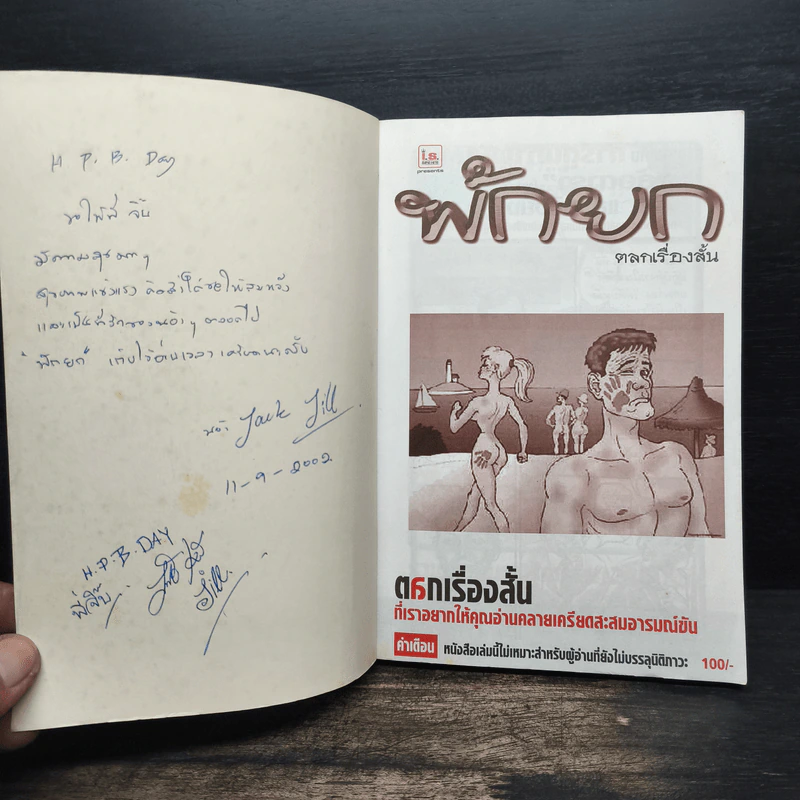 H P. B. Day
ขอให้พี่ จิ๊บ
มีความสุขมากๆ
สุขภาพแข็งแรง คิดสิ่งใดขอให้สมหวัง
และเป็นที่รักของน้องๆ ตลอดไป
"พักยก" เก็บไว้อ่านเวลาเครียดนะครับ
น้อง Jack Jill
11-9-2002
H.P.B.DAY
พี่จิ๊บ
Jill
i.s.
presents
พักยก
ตลกเรื่องสั้น
ตลกเรื่องสั้น
ที่เราอยากให้คุณอ่านคลายเครียดสะสมอารมณ์ขัน
คำเตือน หนังสือเล่มนี้ไม่เหมาะสำหรับผู้อ่านที่ยังไม่บรรลุนิติภาวะ 100/-